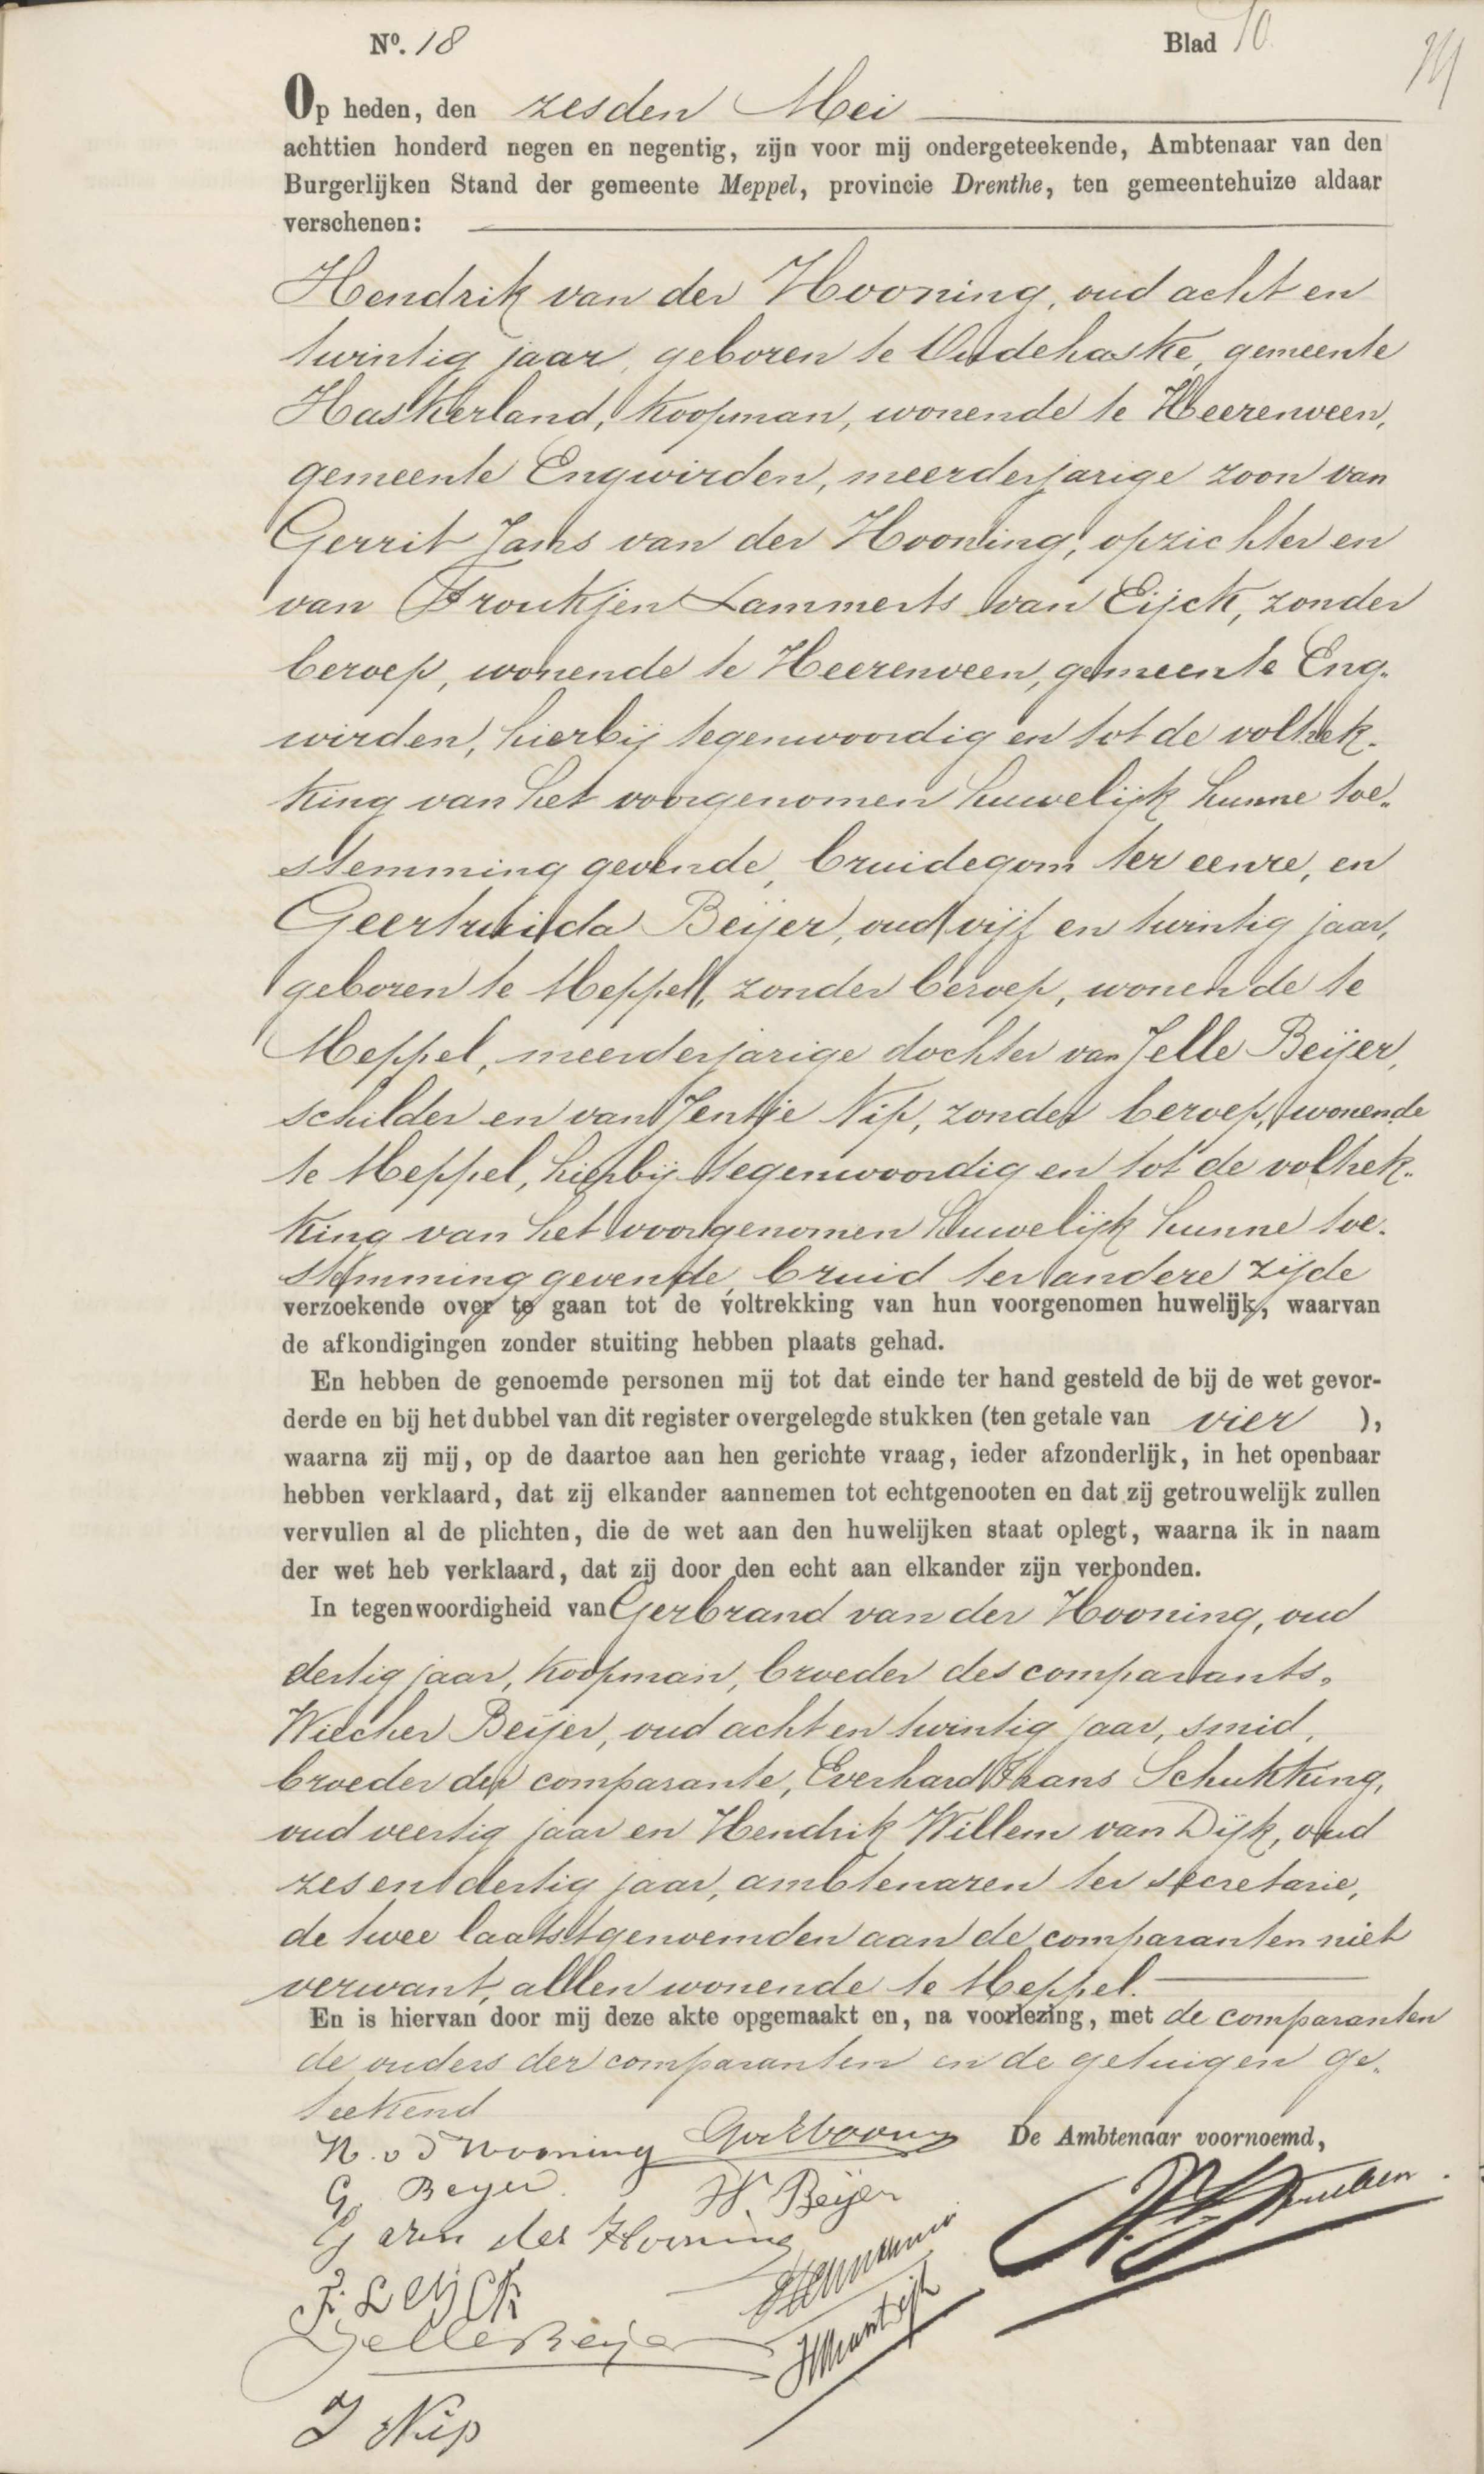 Nº. 18 Blad 10
Op heden, den zesden Mei
achttien honderd negen en negentig, zijn voor mij ondergeteekende, Ambtenaar van den
Burgerlijken Stand der gemeente Meppel, provincie Drenthe, ten gemeentehuize aldaar
verschenen:
Hendrik van der Hooning, oud acht en
twintig jaar, geboren te Oudehaske, gemeente
Haskerland, koopman, wonende te Heerenveen,
gemeente Engwirden, meerderjarige zoon van
Gerrit Jans van der Hooning, opzichter en
van Froukjen Lammerts van Eijck, zonder
beroep, wonende te Heerenveen, gemeente Eng-
wirden, hierbij tegenwoordig en tot de voltrek-
king van het voorgenomen huwelijk hunne toe-
stemming gevende, bruidegom ter eenre, en
Geertruida Beijer, oud vijf en twintig jaar,
geboren te Meppel, zonder beroep, wonende te
Meppel, meerderjarige dochter van Jelle Beijer,
schilder en van Jentje Nip, zonder beroep, wonende
te Meppel, hierbij tegenwoordig en tot de voltrek-
king van het voorgenomen huwelijk hunne toe-
stemming gevende, bruid ter andere zijde
verzoekende over te gaan tot de voltrekking van hun voorgenomen huwelijk, waarvan
de afkondigingen zonder stuiting hebben plaats gehad.
En hebben de genoemde personen mij tot dat einde ter hand gesteld de bij de wet gevor-
derde en bij het dubbel van dit register overgelegde stukken (ten getale van vier ),
waarna zij mij, op de daartoe aan hen gerichte vraag, ieder afzonderlijk, in het openbaar
hebben verklaard, dat zij elkander aannemen tot echtgenooten en dat zij getrouwelijk zullen
vervullen al de plichten, die de wet aan den huwelijken staat oplegt, waarna ik in naam
der wet heb verklaard, dat zij door den echt aan elkander zijn verbonden.
In tegenwoordigheid van Gerbrand van der Hooning, oud
dertig jaar, koopman, broeder des comparants,
Wiecher Beijer, oud acht en twintig jaar, smid,
broeder der comparante, Everhard Frans Schukking,
oud veertig jaar en Hendrik Willem van Dijk, oud
zes en dertig jaar, ambtenaren ter secretarie,
de twee laatstgenoemden aan de comparanten niet
verwant, allen wonende te Meppel.
En is hiervan door mij deze akte opgemaakt en, na voorlezing, met de comparanten
de ouders der comparanten en de getuigen ge-
teekend
H. v d Hooning De Ambtenaar voornoemd,
G. Beyer W. Beijer
G van der Hooning
F. L eijck
Jelle Beijer HWvanDijk
J Nip